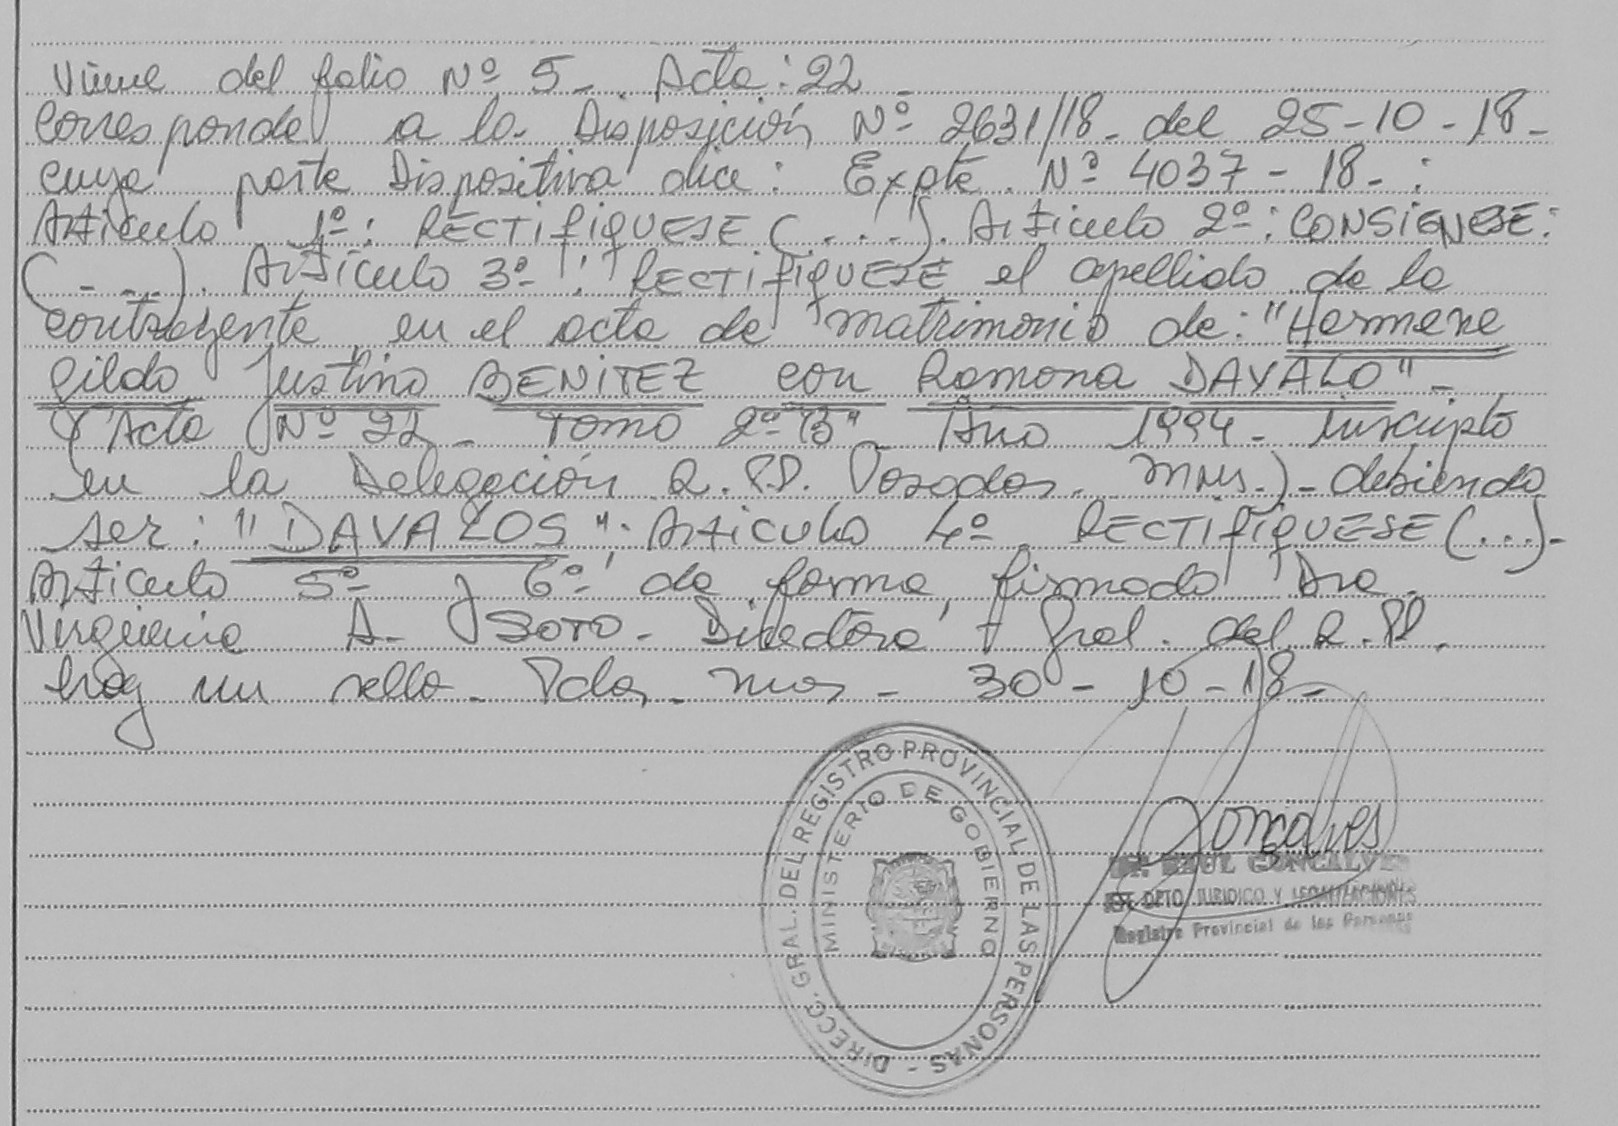 Viene del folio Nº 5-. Acta: 22
Corresponde a la Disposición Nº 2631/18- del 25-10-18-
cuya parte Dispositiva dice: Expte. Nº 4037-18-:
Artículo 1º: RECTIFIQUESE (...). Artículo 2º: CONSIGNESE:
(...). Artículo 3º: RECTIFIQUESE el apellido de la
contrayente en el acta de matrimonio de: "Hermene
gildo Justino BENITEZ con Ramona DAVALO"-
(Acta Nº 22- Tomo 2º "B"- Año 1994- inscripto
en la Delegación R.PP. Posadas. Mnes.)- debiendo
ser: "DAVALOS". Artículo 4º RECTIFIQUESE (...)-
Artículo 5º y 6º de forma, firmado Dra.
A. SOTO- Directora Gral. del R.PP.
hay un sello- Pdas. Mnes- 30-10-18-
DIRECC. GRAL. DEL REGISTRO PROVINCIAL DE LAS PERSONAS -
MINISTERIO DE GOBIERNO
Goncalves
RAUL GONCALVES
DPTO JURIDICO Y LEGALIZACIONES
Registro Provincial de las Personas